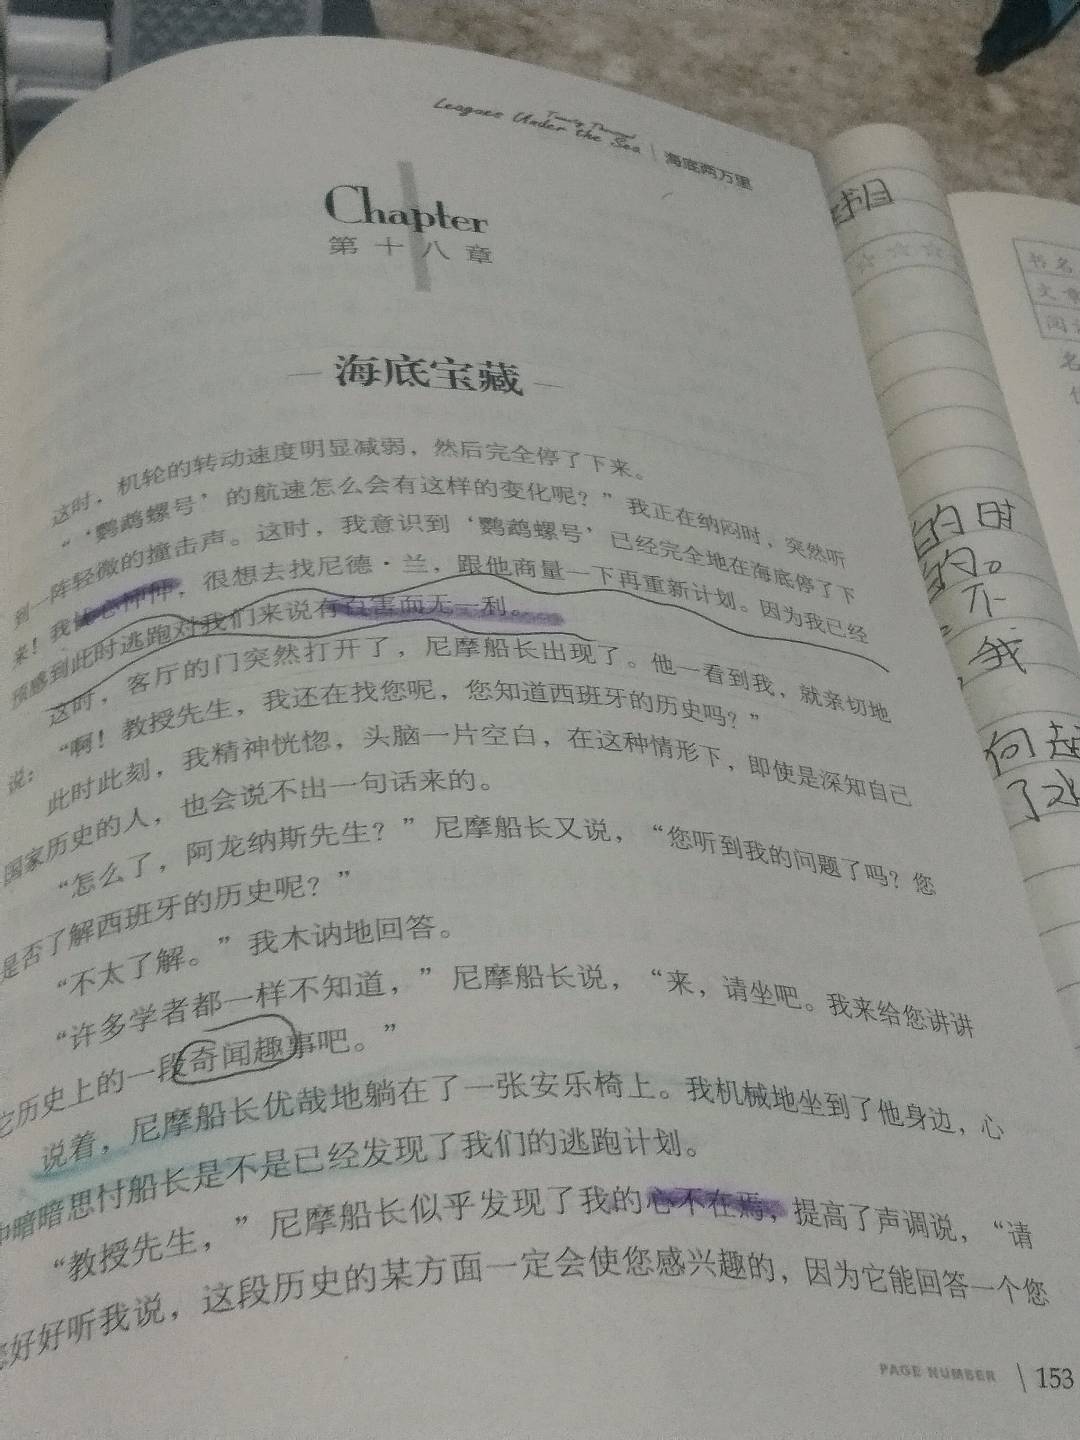 Twenty Thousand
Leagues Under the Sea | 海底两万里
Chapter
第十八章
海底宝藏
这时，机轮的转动速度明显减弱，然后完全停了下来。
“‘鹦鹉螺号’的航速怎么会有这样的变化呢？”我正在纳闷时，突然听
到一阵轻微的撞击声。这时，我意识到‘鹦鹉螺号’已经完全地在海底停了下
来！我忧心忡忡，很想去找尼德·兰，跟他商量一下再重新计划。因为我已经
预感到此时逃跑对我们来说有百害而无一利。
这时，客厅的门突然打开了，尼摩船长出现了。他一看到我，就亲切地
说：
“啊！教授先生，我还在找您呢，您知道西班牙的历史吗？”
此时此刻，我精神恍惚，头脑一片空白，在这种情形下，即使是深知自己
国家历史的人，也会说不出一句话来的。
“怎么了，阿龙纳斯先生？”尼摩船长又说，“您听到我的问题了吗？您
是否了解西班牙的历史呢？”
“不太了解。”我木讷地回答。
“许多学者都一样不知道，”尼摩船长说，“来，请坐吧。我来给您讲讲
它历史上的一段奇闻趣事吧。”
说着，尼摩船长优哉地躺在了一张安乐椅上。我机械地坐到了他身边，心
中暗暗思忖船长是不是已经发现了我们的逃跑计划。
“教授先生，”尼摩船长似乎发现了我的心不在焉，提高了声调说，“请
您好好听我说，这段历史的某方面一定会使您感兴趣的，因为它能回答一个您
PAGE NUMBER | 153
书名
文章
阅
名
的时
的。
不
我
向起
了